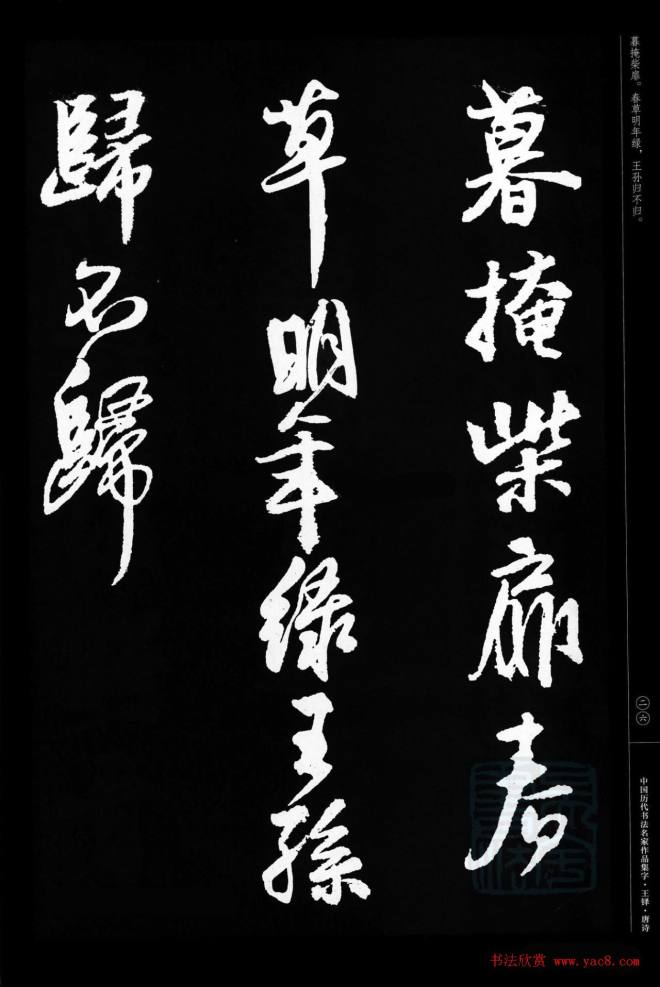 暮掩柴扉春
草明年緑王孫
歸不歸
暮掩柴扉。春草明年绿，王孙归不归。
二六
中国历代书法名家作品集字·王铎·唐诗
书法欣赏 www.yac8.com